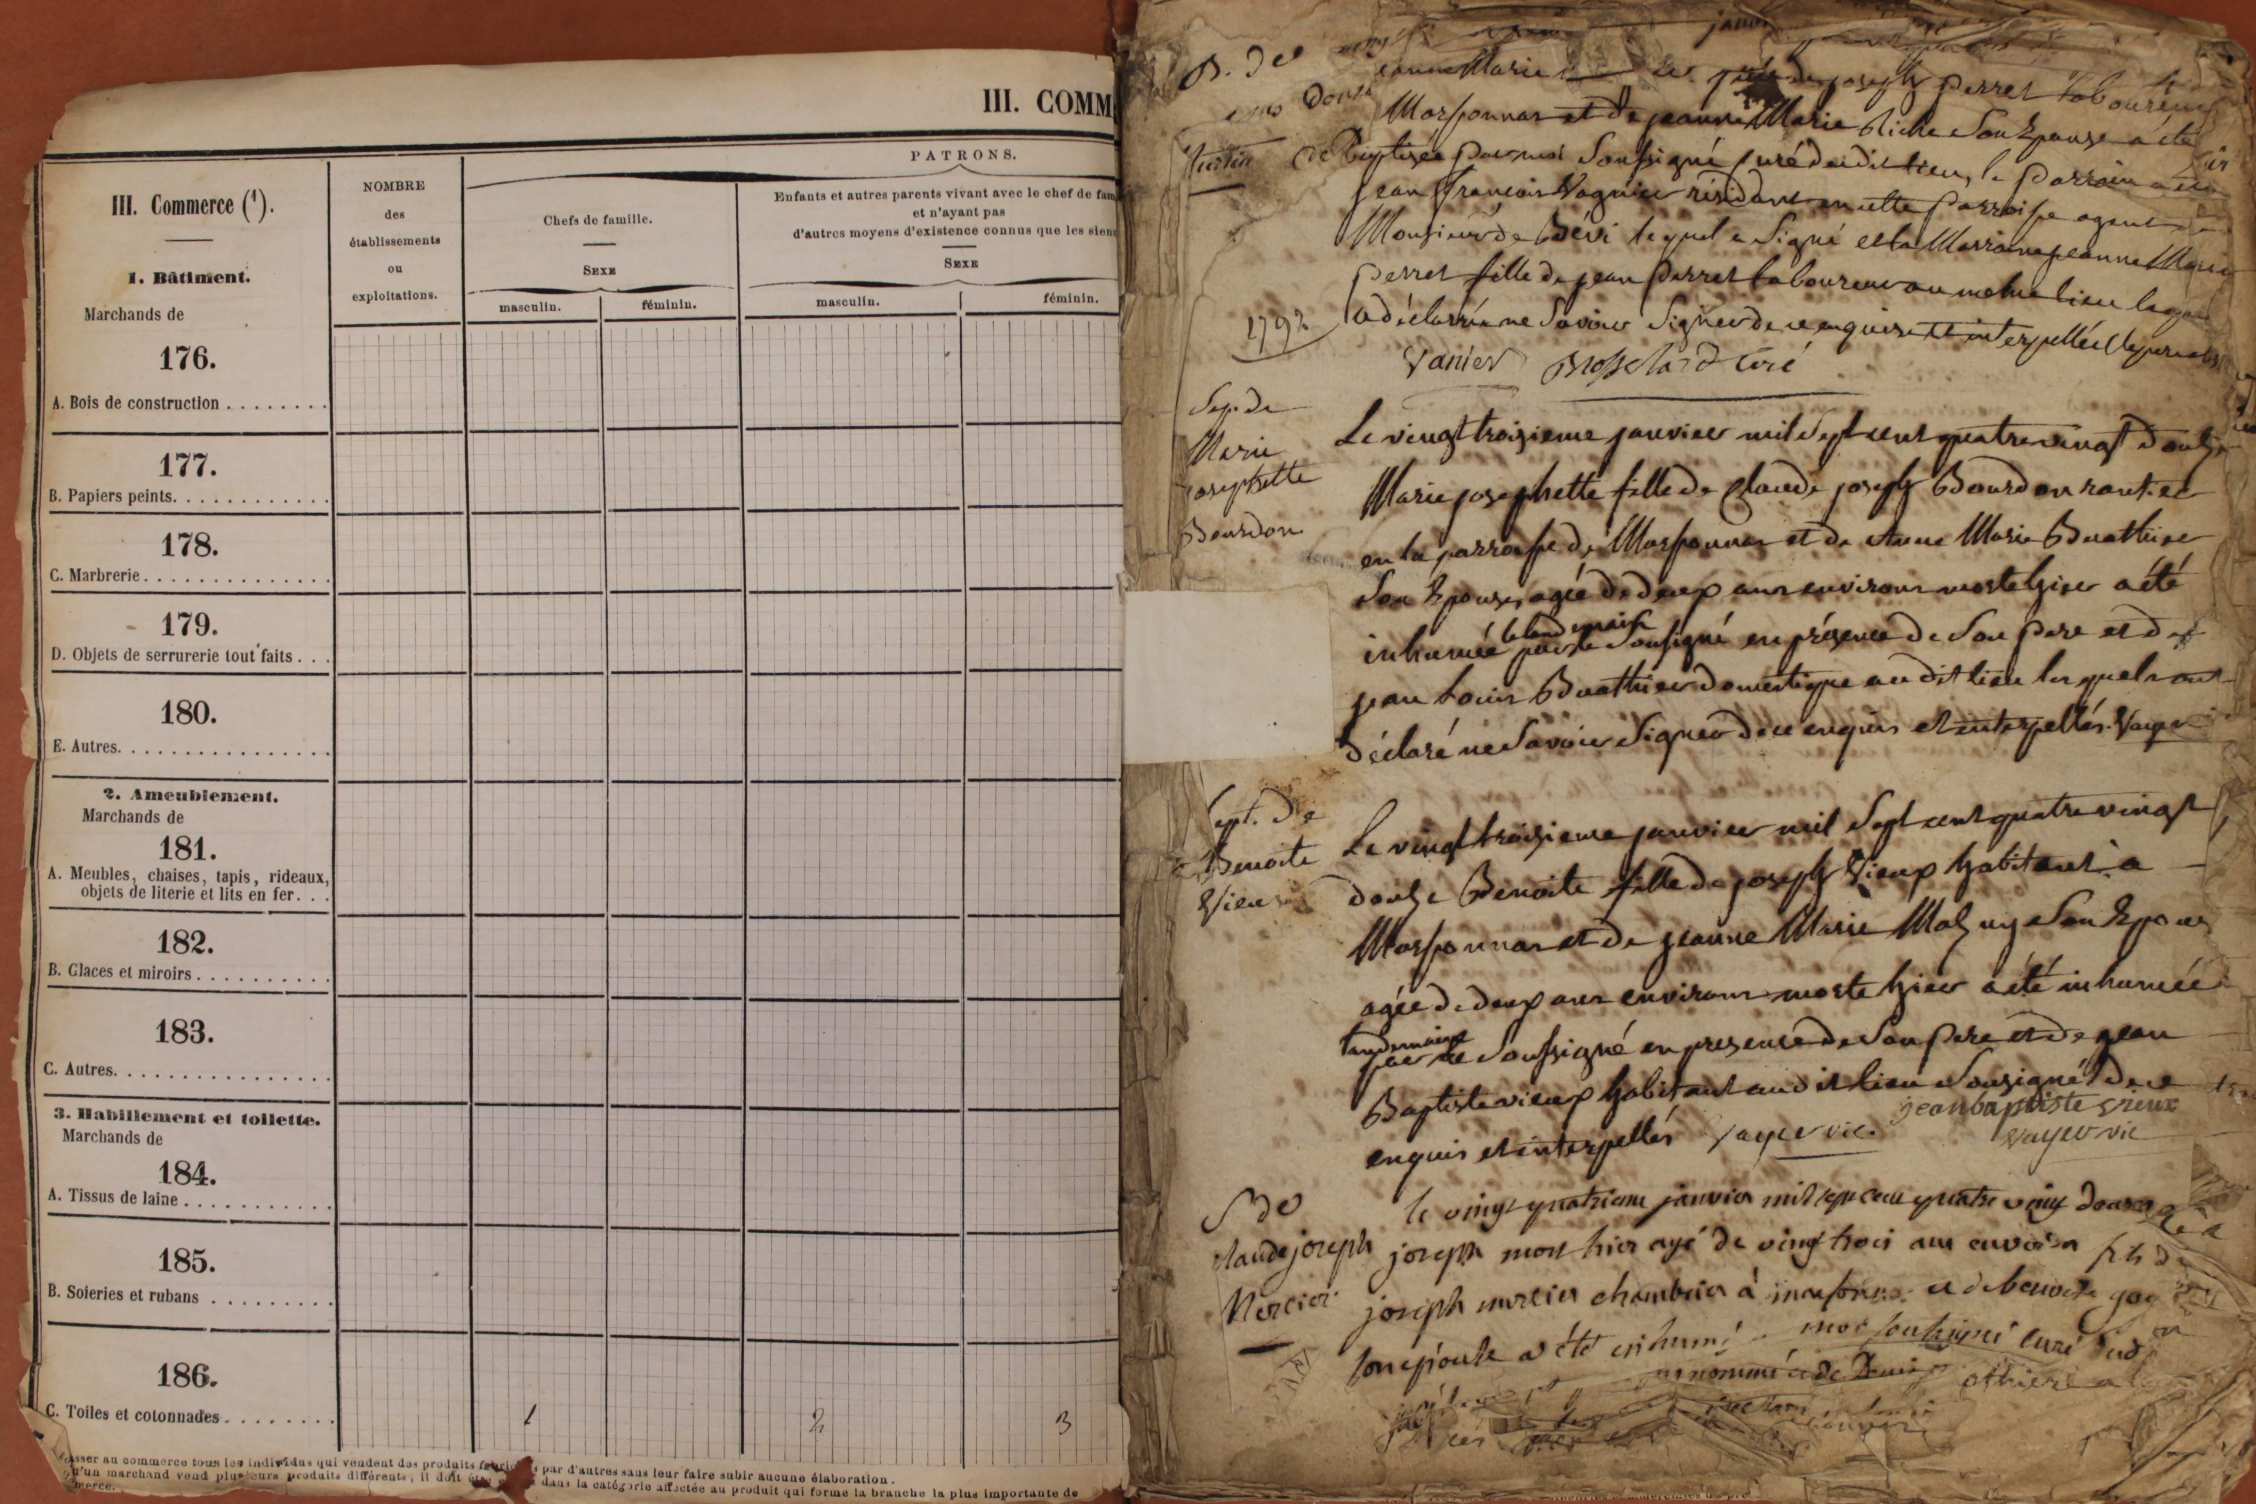 III. COMM
III. Commerce (1).
NOMBRE
des
établissements
ou
exploitations.
PATRONS.
Chefs de famille.
SEXE
masculin.
féminin.
Enfants et autres parents vivant avec le chef de fam
et n'ayant pas
d'autres moyens d'existence connus que les siens
SEXE
masculin.
féminin.
1. Bâtiment.
Marchands de
176.
A. Bois de construction . . . . . . . .
177.
B. Papiers peints. . . . . . . . . . . .
178.
C. Marbrerie . . . . . . . . . . . . . .
179.
D. Objets de serrurerie tout faits . . .
180.
E. Autres. . . . . . . . . . . . . . . .
2. Ameublement.
Marchands de
181.
A. Meubles, chaises, tapis, rideaux,
objets de literie et lits en fer. . .
182.
B. Glaces et miroirs . . . . . . . . . .
183.
C. Autres. . . . . . . . . . . . . . . .
3. Habillement et toilette.
Marchands de
184.
A. Tissus de laine . . . . . . . . . . .
185.
B. Soieries et rubans . . . . . . . . .
186.
C. Toiles et cotonnades . . . . . . . .
1 2 3
asser au commerce tous les individus qui vendent des produits fabriqués par d'autres sans leur faire subir aucune élaboration.
u'un marchand vend plusieurs produits différents, il doit être dans la catégorie affectée au produit qui forme la branche la plus importante de
merce.
B. de
jeanne Marie joseph perret laboureur
Marsonnas et de jeanne Marie Son Epouse a été
Baptisée par moi Soussigné curé dudit lieu, le parrain a été
jean françois Vagnier résidant en cette parroisse agent de
Monsieur de Bévi lequel a Signé et la Marraine jeanne Marie
perret fille de jean perret laboureur au meme lieu laquelle
a déclarée ne Savoir Signer de ce enquise et interpellée
1792
Vanier Brossard curé
Sep. de
Marie
josephette
Bourdon
Le vingt troisieme janvier mil Sept cent quatre vingt douze
Marie josephette fille de Claude joseph Bourdon rentier
en la parroisse de Marsonnas et de Anne Marie Buathier
Son Epouse, agée de deux ans environs morte hier a été
inhumée le lendemain par le Soussigné en présence de Son pere et de
jean Louis Buathier domestique audit lieu lesquels ont
déclaré ne Savoir Signer de ce enquis et interpellés. Vayer
Sept. de
Benoite
Vieux
Le vingt troisieme janvier mil Sept cent quatre vingt
douze Benoite fille de joseph Vieux habitant a
Marsonnas et de jeanne Marie Mazuy Son Epouse
agée de deux ans environs morte hier a été inhumée
lendemain par le Soussigné en presence de Son pere et de jean
Baptiste vieux habitant audit lieu Sousigné de ce
enquis et interpellés Vayer vic. jean baptiste vieux
Vayer vic
S de
claude joseph
Mercier
le vingt quatrieme janvier mil sept cent quatre vingt douze
joseph mort hier agé de vingt trois ans environ fils de
joseph mercier chambrier à marsonnas et de benoite
son epouse a été inhumé moi soussigné curé dud